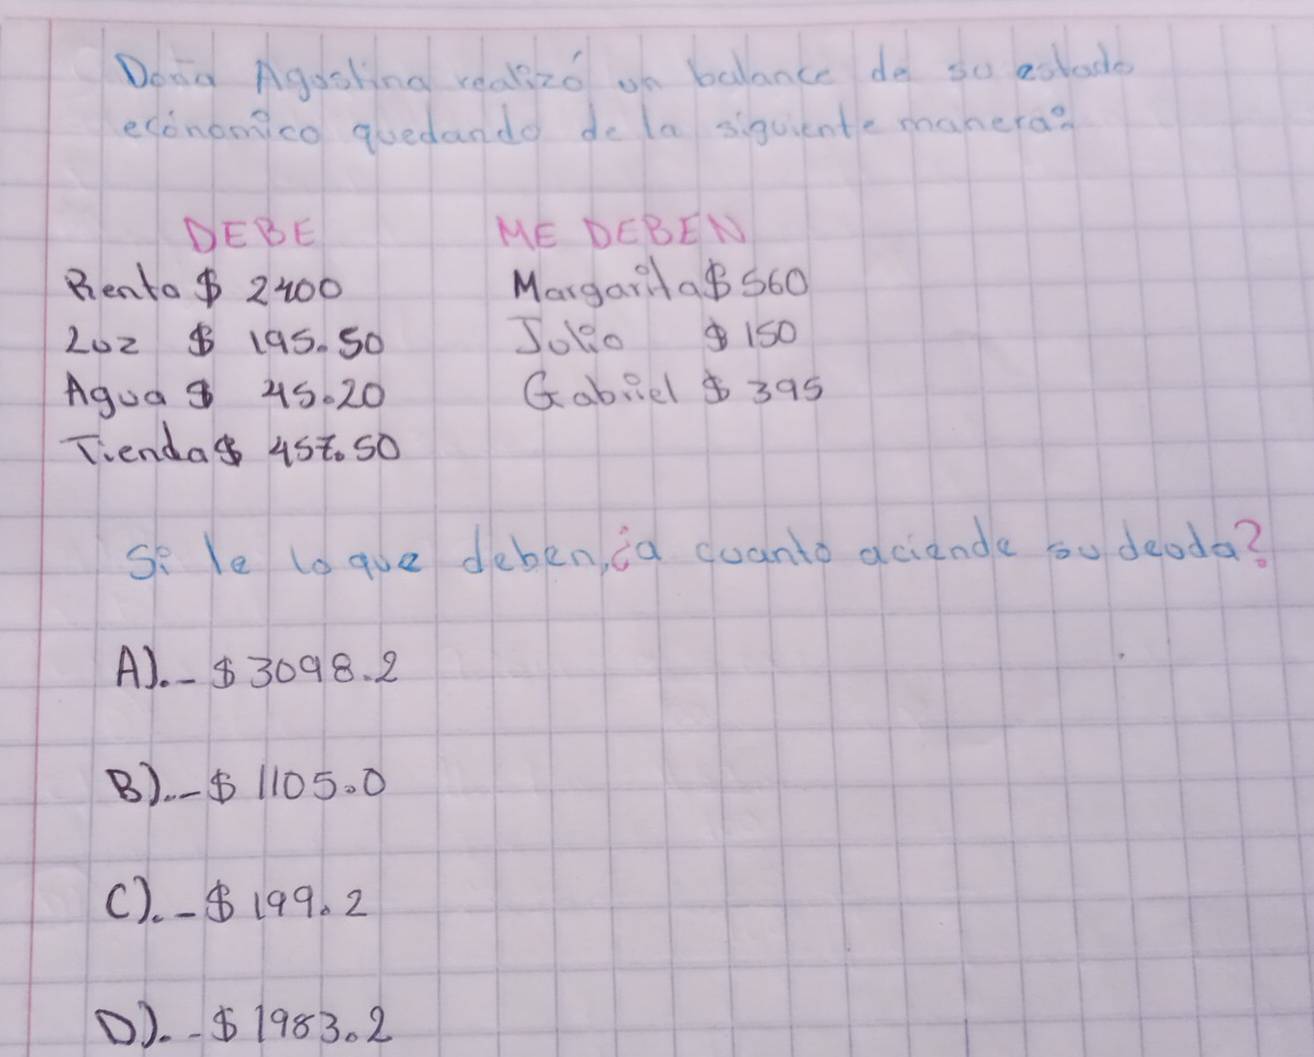 Doña Agostina realizó un balance de su estado
ecónomico quedando de la siguiente manera:
DEBE ME DEBEN
Renta $ 2400 Margarita $ 560
Luz $ 195.50 Julio $ 150
Agua $ 45.20 Gabriel $ 395
Tienda $ 457.50
Si le lo que deben, ¿a cuanto aciende su deuda?
A).- $ 3098.2
B).- $ 1105.0
C).- $ 199.2
D).- $ 1983.2